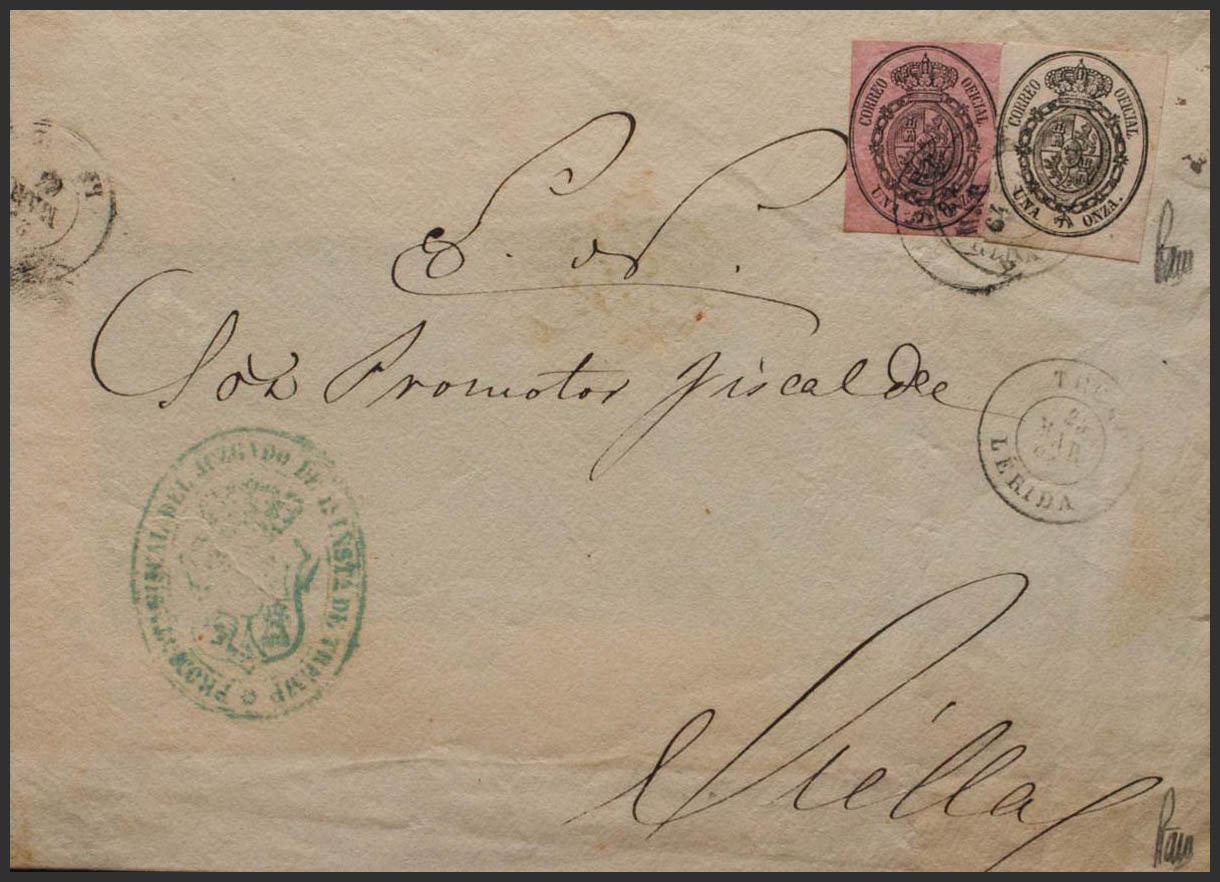 CORREO OFICIAL
UNA ONZA.
CORREO OFICIAL
UNA ONZA.
S. N.
Sor Promotor fiscal de
LÉRIDA
MAR
FISCAL DEL JUZGADO DE 1ª INSTA DE TREMP
Viella